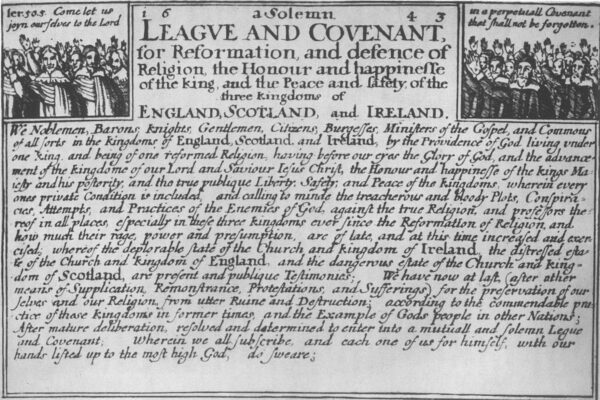 Ier. 50. 5. Come let us
joyn our selves to the Lord
1 6 a Solemn 4 3
LEAGVE AND COVENANT,
for Reformation, and defence of
Religion, the Honour and happinesse
of the king, and the Peace and safety of the
three kingdoms of
ENGLAND, SCOTLAND, and IRELAND.
in a perpetuall Covenant
that shall not be forgotten.
We Noblemen, Barons, Knights, Gentlemen, Citizens, Burgesses, Ministers of the Gospel, and Commons
of all sorts in the kingdoms of England, Scotland, and Ireland, by the Providence of God living vnder
one king, and being of one reformed Religion, having before our eyes the Glory of God, and the advance-
ment of the kingdome of our Lord and Saviour Iesus Christ, the Honour and happinesse of the kings Ma-
iesty and his posterity, and the true publique Liberty, Safety, and Peace of the kingdoms, wherein every
ones private Condition is included, and calling to minde the treacherous and bloody Plots, Conspira-
cies, Attempts, and Practices of the Enemies of God, against the true Religion, and professors the-
reof in all places, especially in these three kingdoms ever since the Reformation of Religion, and
how much their rage, power and presumption, are of late, and at this time increased and exer-
cised, whereof the deplorable state of the Church and kingdom of Ireland, the distressed esta-
te of the Church and kingdom of England, and the dangerous estate of the Church and king-
dom of Scotland, are present and publique Testimonies. We have now at last, (after other
means of Supplication, Remonstrance, Protestations, and Sufferings) for the preservation of our
selves and our Religion, from utter Ruine and Destruction; according to the commendable pra-
ctice of these kingdoms in former times, and the Example of Gods people in other Nations;
After mature deliberation, resolved and determined to enter into a mutuall and solemn Legue
and Covenant; Wherein we all subscribe, and each one of us for himself, with our
hands lifted up to the most high God, do sweare;